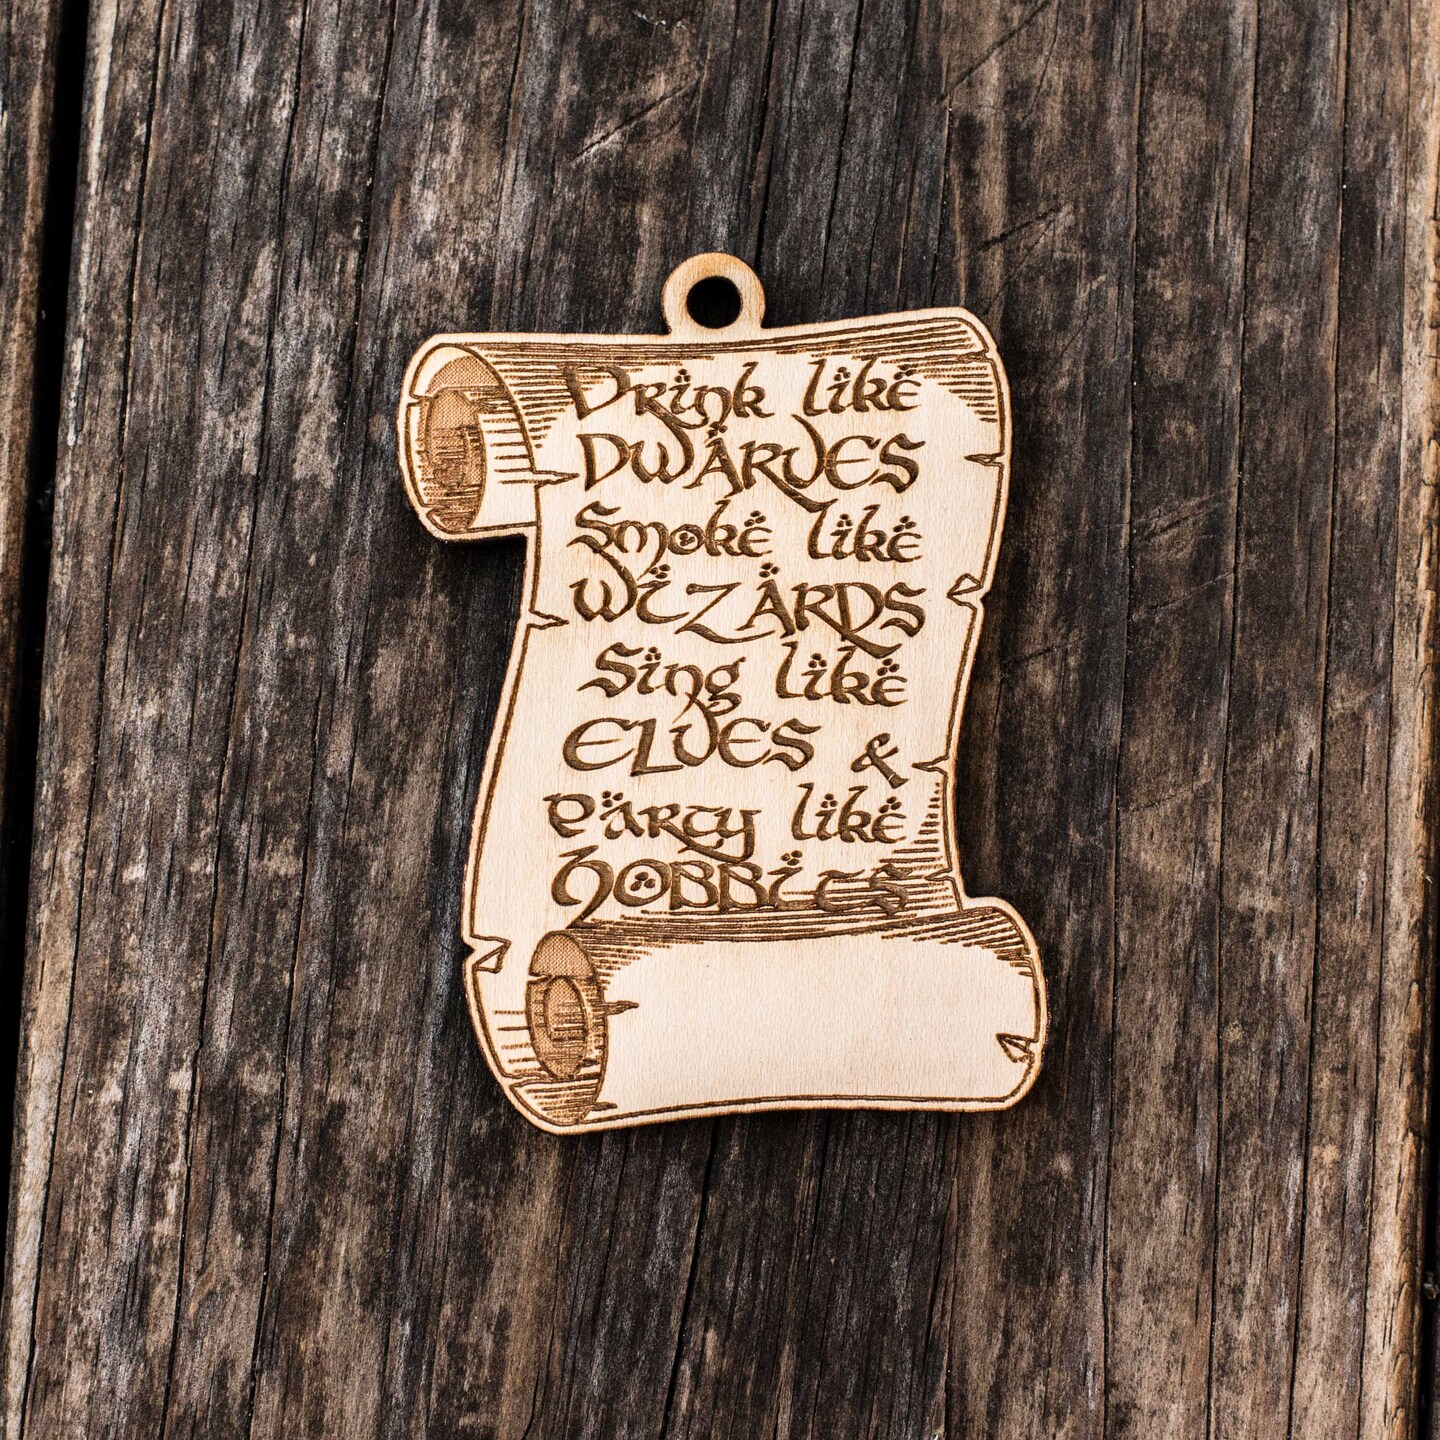 Drink like
DWARVES
Smoke like
WIZARDS
Sing like
ELVES &
Party like
HOBBITS